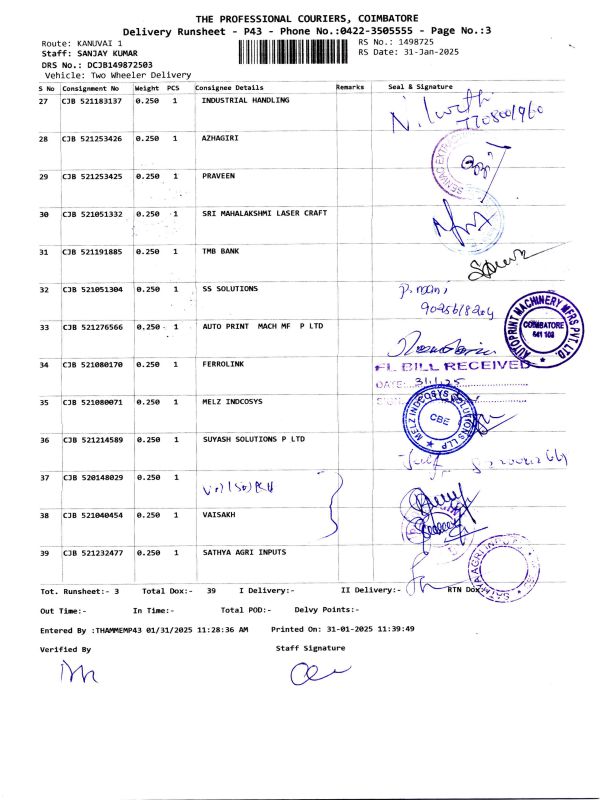 THE PROFESSIONAL COURIERS, COIMBATORE
Delivery Runsheet - P43 - Phone No.:0422-3505555 - Page No.:3
Route: KANUVAI 1 RS No.: 1498725
Staff: SANJAY KUMAR RS Date: 31-Jan-2025
DRS No.: DCJB149872503
Vehicle: Two Wheeler Delivery
S No Consignment No Weight PCS Consignee Details Remarks Seal & Signature
27 CJB 521183137 0.250 1 INDUSTRIAL HANDLING
28 CJB 521253426 0.250 1 AZHAGIRI
29 CJB 521253425 0.250 1 PRAVEEN
30 CJB 521051332 0.250 1 SRI MAHALAKSHMI LASER CRAFT
31 CJB 521191885 0.250 1 TMB BANK
32 CJB 521051304 0.250 1 SS SOLUTIONS P. mani
33 CJB 521276566 0.250 1 AUTO PRINT MACH MF P LTD
AUTOPRINT MACHINERY MFRS PVT. LTD.
COIMBATORE
641 108
34 CJB 521080170 0.250 1 FERROLINK
BILL RECEIVED
DATE: 31/1/25
35 CJB 521080071 0.250 1 MELZ INDCOSYS
MELZ INDCOSYS SOLUTIONS LLP
CBE
36 CJB 521214589 0.250 1 SUYASH SOLUTIONS P LTD
37 CJB 520148029 0.250 1
38 CJB 521040454 0.250 1 VAISAKH
39 CJB 521232477 0.250 1 SATHYA AGRI INPUTS
SATHYA AGRI INPUTS
Tot. Runsheet:- 3 Total Dox:- 39 I Delivery:- II Delivery:- RTN Dox:-
Out Time:- In Time:- Total POD:- Delvy Points:-
Entered By :THAMMEMP43 01/31/2025 11:28:36 AM Printed On: 31-01-2025 11:39:49
Verified By Staff Signature